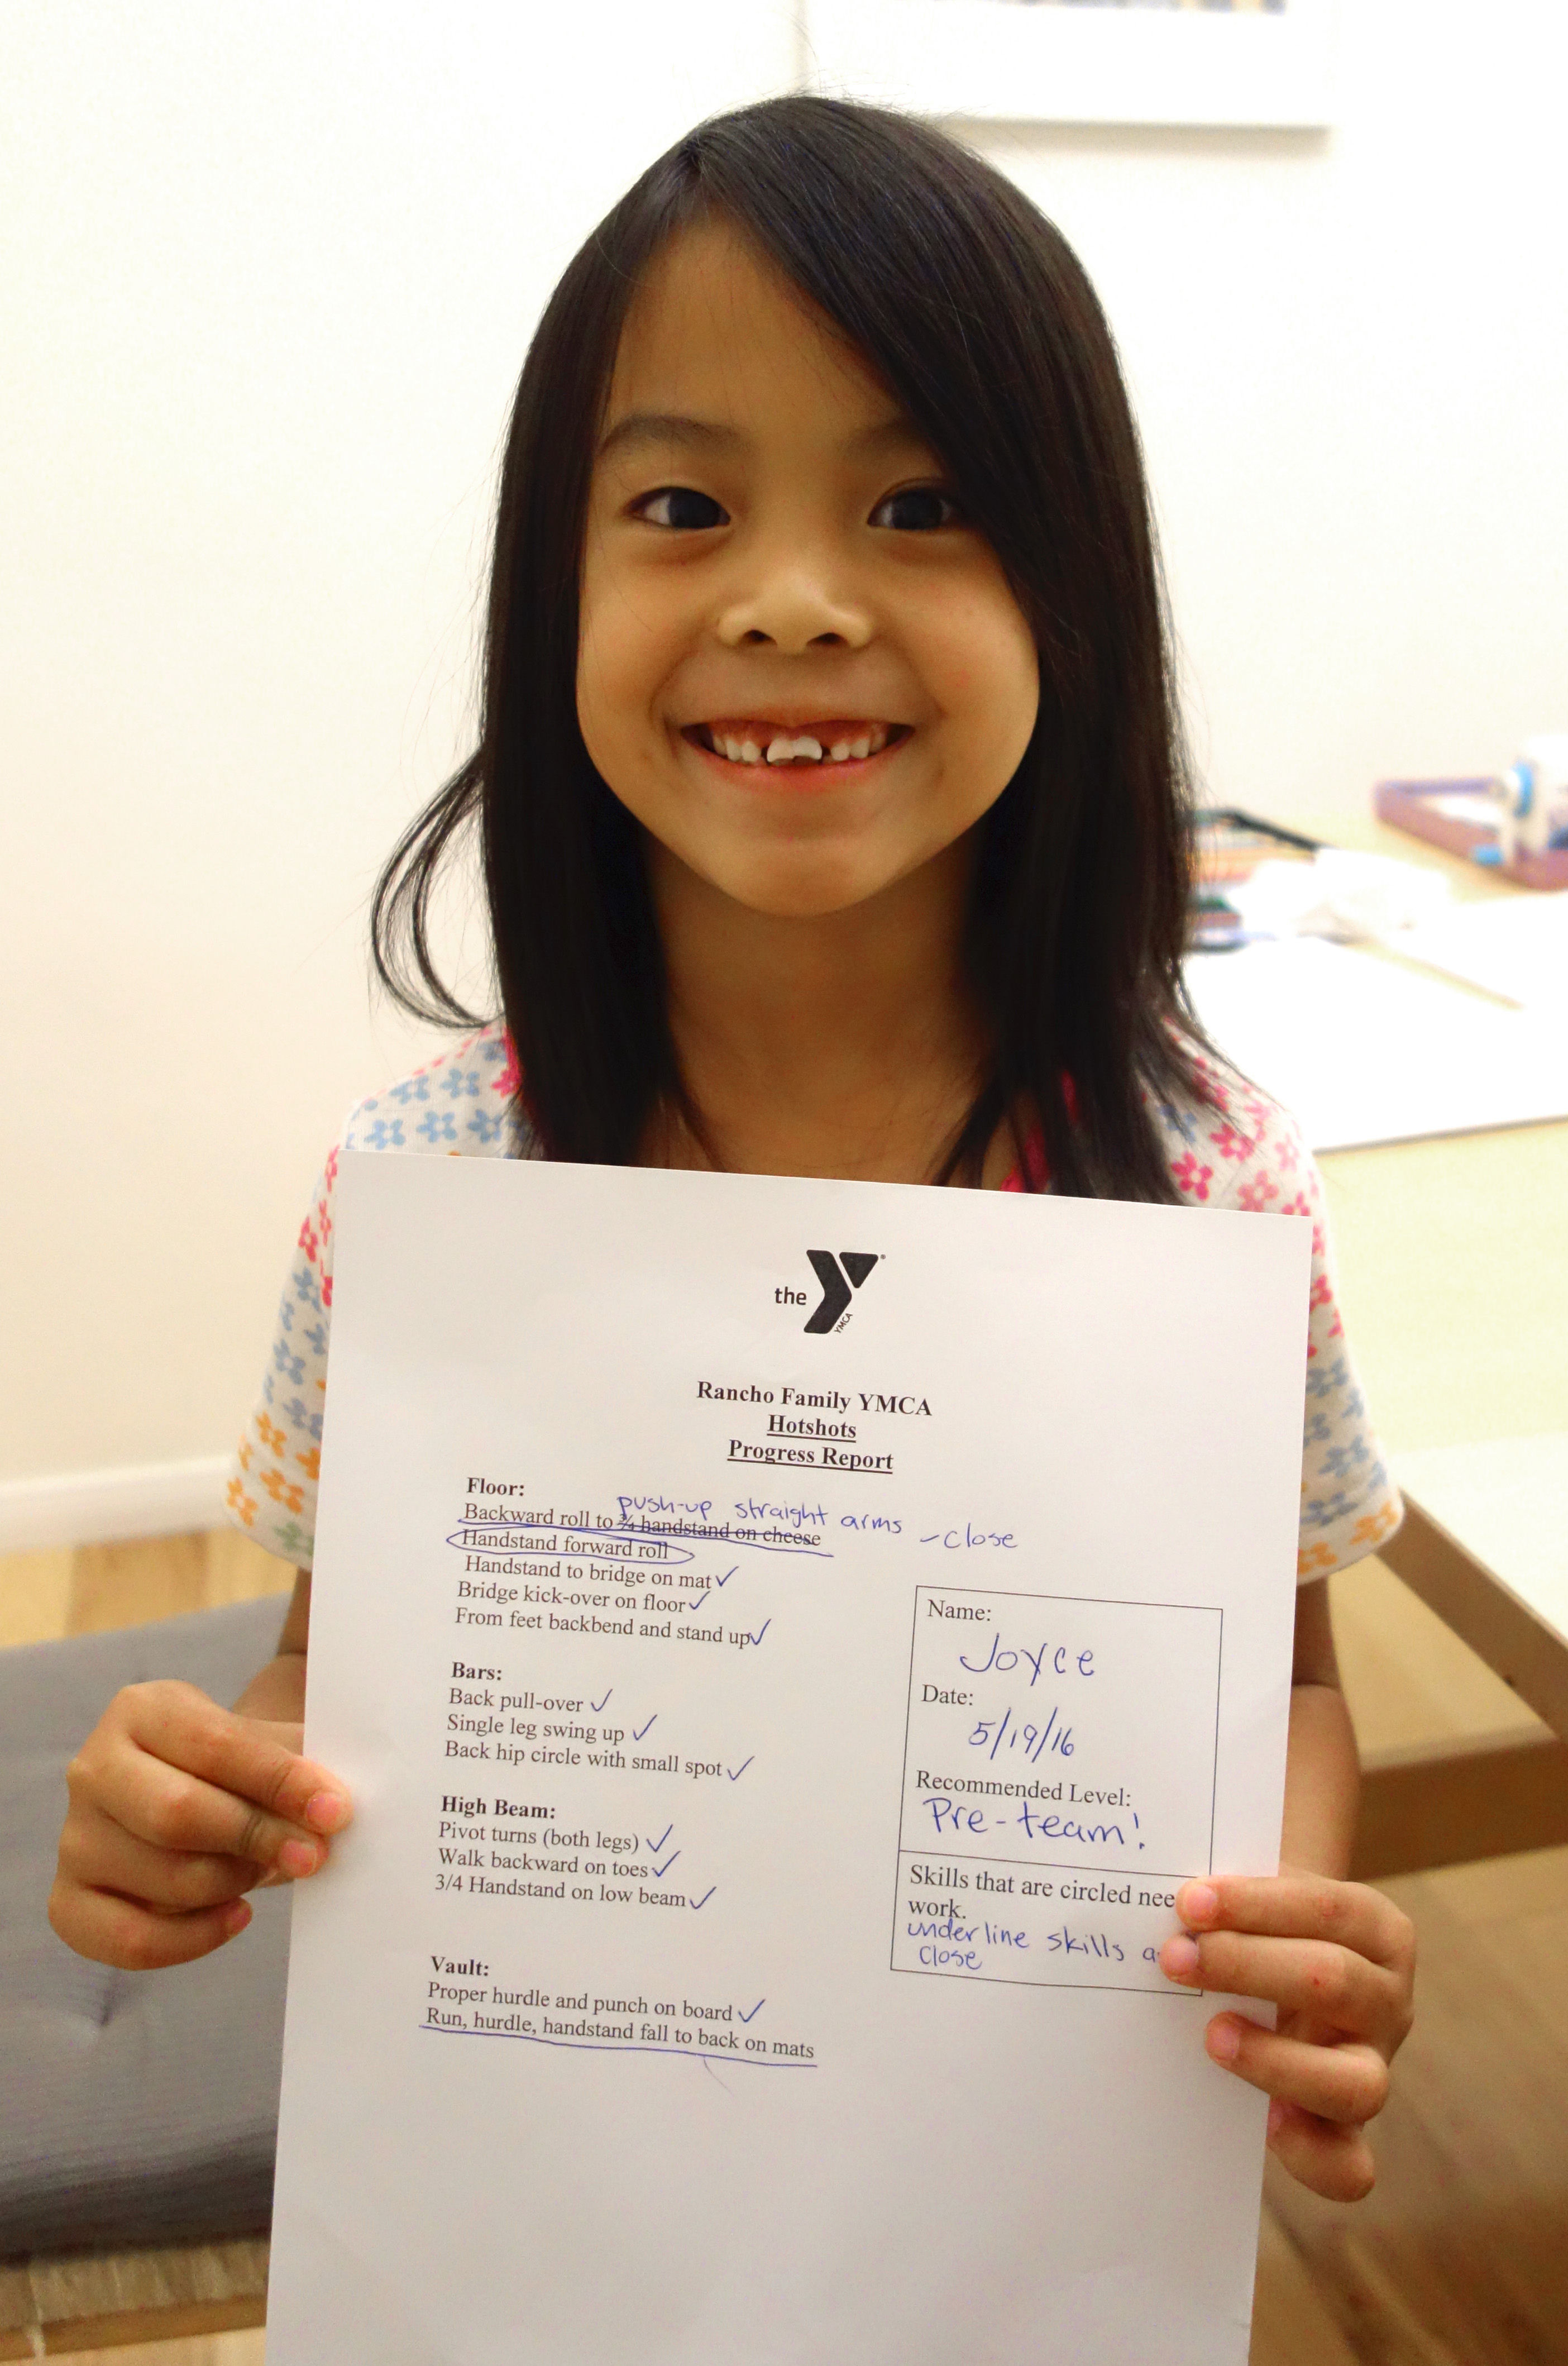 the Y
YMCA
Rancho Family YMCA
Hotshots
Progress Report
Floor:
push-up straight arms
Backward roll to ¾ handstand on cheese - close
Handstand forward roll
Handstand to bridge on mat ✓
Bridge kick-over on floor ✓
From feet backbend and stand up ✓
Bars:
Back pull-over ✓
Single leg swing up ✓
Back hip circle with small spot ✓
High Beam:
Pivot turns (both legs) ✓
Walk backward on toes ✓
3/4 Handstand on low beam ✓
Vault:
Proper hurdle and punch on board ✓
Run, hurdle, handstand fall to back on mats
Name:
Joyce
Date:
5/19/16
Recommended Level:
Pre-team!
Skills that are circled nee
work.
underline skills a
close